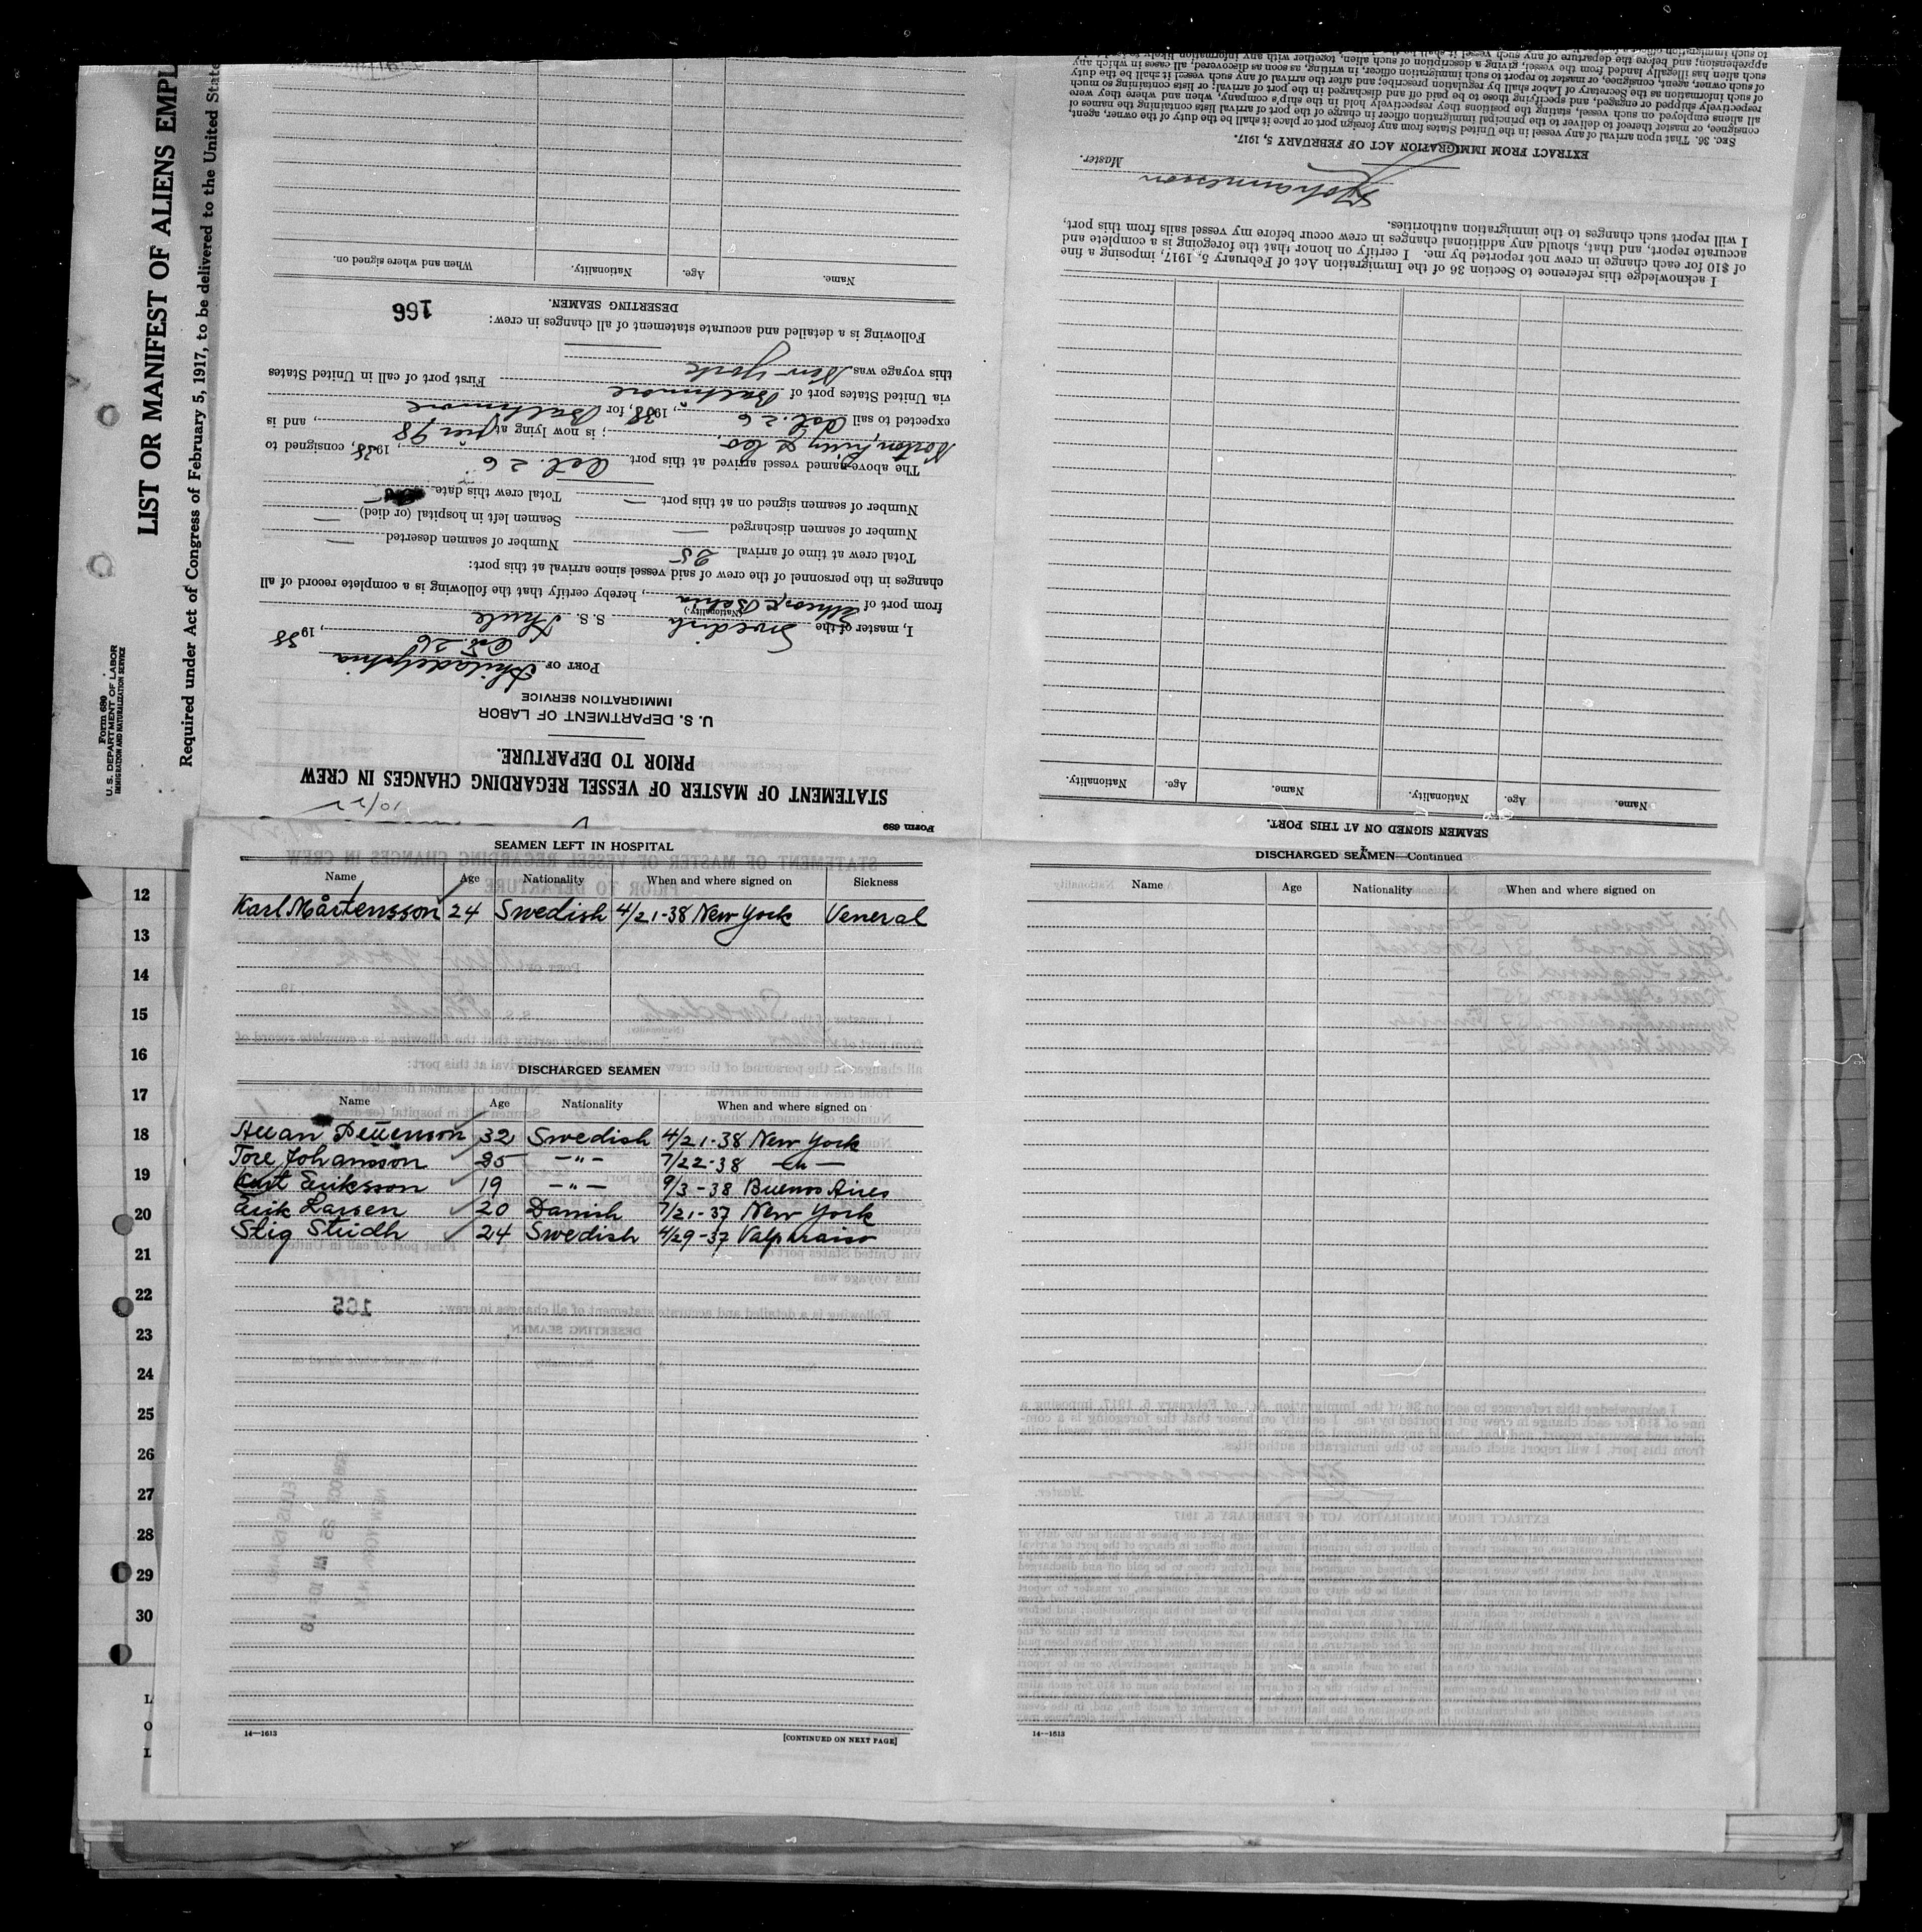 LIST OR MANIFEST OF ALIENS EMPL
Required under Act of Congress of February 5, 1917, to be delivered to the United State
Form 680
U. S. DEPARTMENT OF LABOR
IMMIGRATION AND NATURALIZATION SERVICE
Form 689
10/27
STATEMENT OF MASTER OF VESSEL REGARDING CHANGES IN CREW
PRIOR TO DEPARTURE.
U. S. DEPARTMENT OF LABOR
IMMIGRATION SERVICE
PORT OF Philadelphia
Oct. 26, 1938
I, master of the Swedish S. S. Thule
(Nationality.)
from port of , hereby certify that the following is a complete record of all
changes in the personnel of the crew of said vessel since arrival at this port:
Total crew at time of arrival 25 Number of seamen deserted —
Number of seamen discharged — Seamen left in hospital (or died) —
Number of seamen signed on at this port — Total crew this date
The above-named vessel arrived at this port Oct. 26, 1938, consigned to
Norton, Lilly & Co.; is now lying at Pier 98, and is
expected to sail Oct. 26, 1938, for Baltimore
via United States port of Baltimore First port of call in United States
this voyage was New York
Following is a detailed and accurate statement of all changes in crew:
166
DESERTING SEAMEN.
Name. Age. Nationality. When and where signed on.
SEAMEN SIGNED ON AT THIS PORT.
Name. Age. Nationality. Name. Age. Nationality.
I acknowledge this reference to Section 36 of the Immigration Act of February 5, 1917, imposing a fine
of $10 for each change in crew not reported by me. I certify on honor that the foregoing is a complete and
accurate report, and that, should any additional changes in crew occur before my vessel sails from this port,
I will report such changes to the immigration authorities.
Johannesson
Master.
EXTRACT FROM IMMIGRATION ACT OF FEBRUARY 5, 1917.
SEC. 36. That upon arrival of any vessel in the United States from any foreign port or place it shall be the duty of the owner, agent,
consignee, or master thereof to deliver to the principal immigration officer in charge of the port of arrival lists containing the names of
all aliens employed on such vessel, stating the positions they respectively hold in the ship's company, when and where they were
respectively shipped or engaged, and specifying those to be paid off and discharged in the port of arrival; or lists containing so much
of such information as the Secretary of Labor shall by regulation prescribe; and after the arrival of any such vessel it shall be the duty
of such owner, agent, consignee, or master to report to such immigration officer, in writing, as soon as discovered, all cases in which any
such alien has illegally landed from the vessel, giving a description of such alien, together with any information likely to lead to his
apprehension; and before the departure of any such vessel it shall
SEAMEN LEFT IN HOSPITAL
Name Age Nationality When and where signed on Sickness
Karl Mårtensson 24 Swedish 4/21-38 New York Veneral
DISCHARGED SEAMEN
Name Age Nationality When and where signed on
Allan Petterson 32 Swedish 4/21-38 New York
Tore Johansson 25 —"— 7/22-38 —"—
Kurt Eriksson 19 —"— 9/3-38 Buenos Aires
Erik Larsen 20 Danish 7/21-37 New York
Stig Stridh 24 Swedish 4/29-37 Valpiraiso
14—1613
[CONTINUED ON NEXT PAGE]
DISCHARGED SEAMEN—Continued
Name Age Nationality When and where signed on
14—1613
12
13
14
15
16
17
18
19
20
21
22
23
24
25
26
27
28
29
30